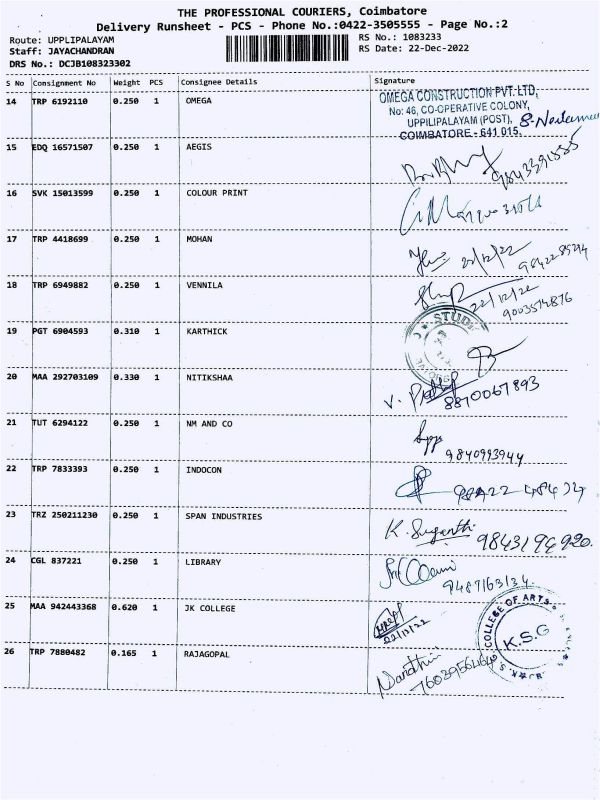 THE PROFESSIONAL COURIERS, Coimbatore
Delivery Runsheet - PCS - Phone No.:0422-3505555 - Page No.:2
Route: UPPLIPALAYAM
RS No.: 1083233
Staff: JAYACHANDRAN
RS Date: 22-Dec-2022
DRS No.: DCJB108323302
S No Consignment No Weight PCS Consignee Details Signature
14 TRP 6192110 0.250 1 OMEGA
OMEGA CONSTRUCTION PVT.LTD,
No: 46, CO-OPERATIVE COLONY,
UPPILIPALAYAM (POST),
COIMBATORE - 641 015.
15 EDQ 16571507 0.250 1 AEGIS
16 SVK 15013599 0.250 1 COLOUR PRINT
17 TRP 4418699 0.250 1 MOHAN
22/12/22
18 TRP 6949882 0.250 1 VENNILA
22/12/22
9003574876
19 PGT 6904593 0.310 1 KARTHICK
STUDI
20 MAA 292703109 0.330 1 NITIKSHAA
8870067893
21 TUT 6294122 0.250 1 NM AND CO
9840993944
22 TRP 7833393 0.250 1 INDOCON
23 TRZ 250211230 0.250 1 SPAN INDUSTRIES
K. Suganthi
9843194920.
24 CGL 837221 0.250 1 LIBRARY
9487163134.
25 MAA 942443368 0.620 1 JK COLLEGE
22/12/22
COLLEGE OF ARTS
K.S.G
26 TRP 7880482 0.165 1 RAJAGOPAL
Nandhini